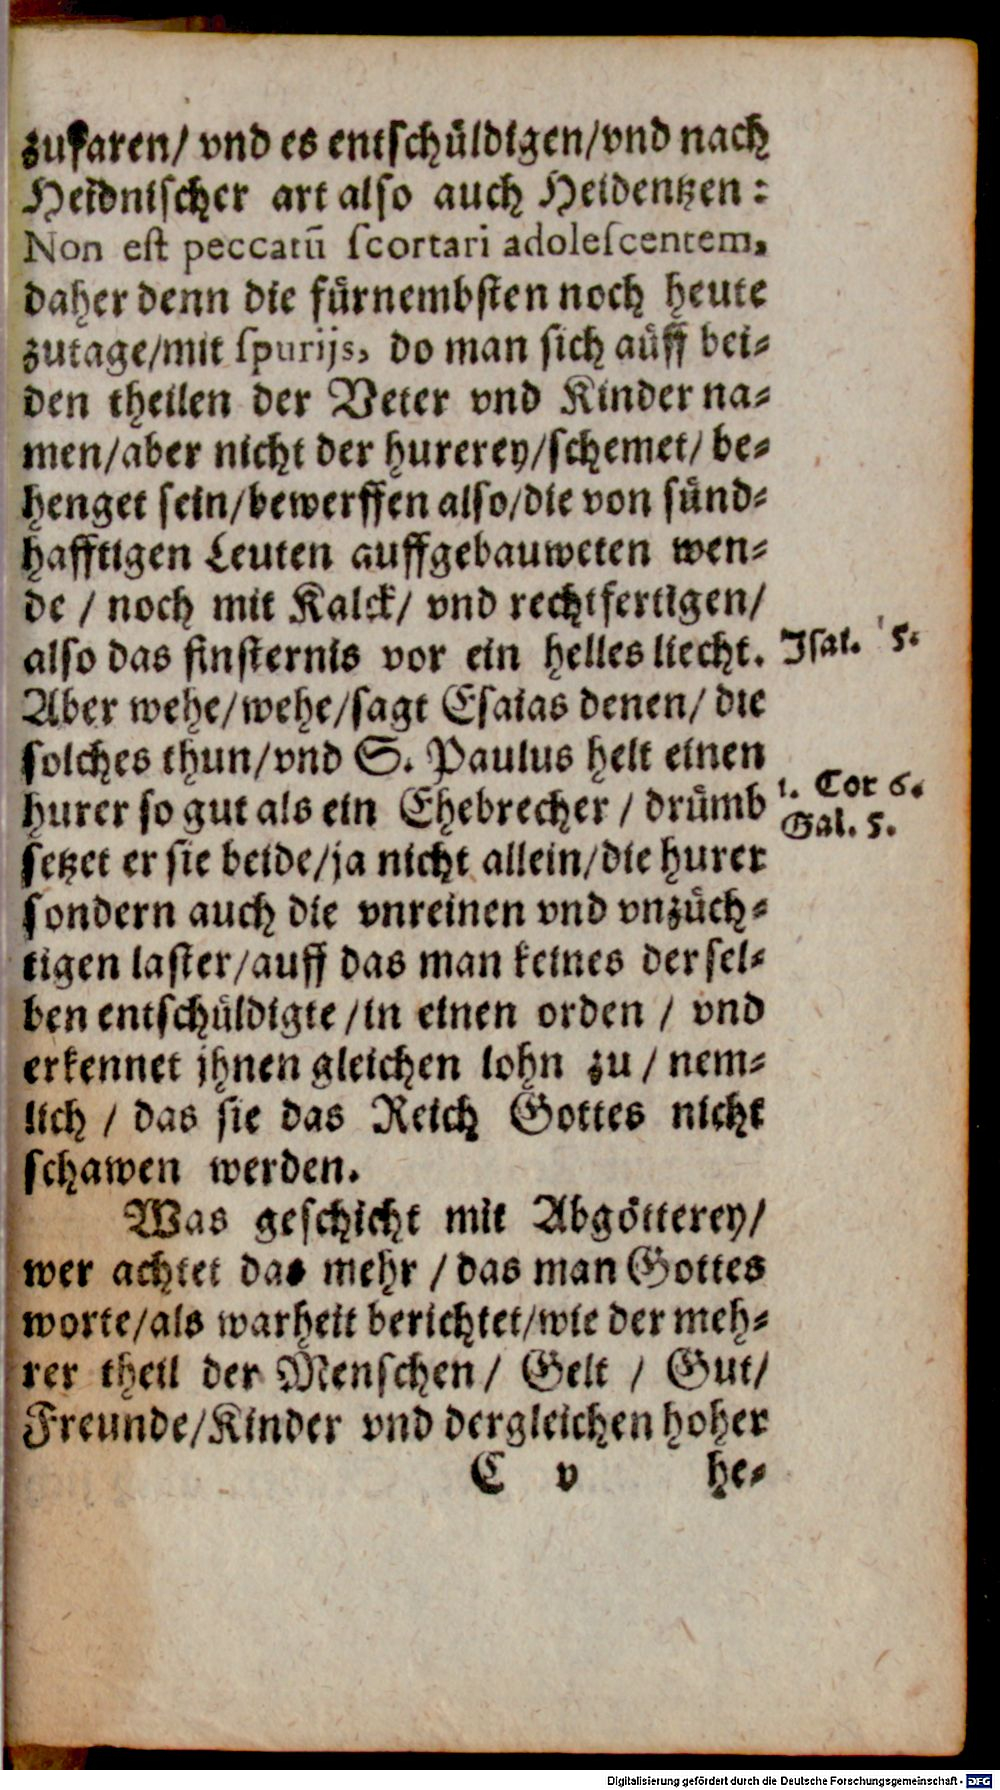 zufaren/ vnd es entschüldigen/vnd nach
Heidnischer art also auch Heidentzen:
Non est peccatū scortari adolescentem,
daher denn die fürnembsten noch heute
zutage/mit spurijs, do man sich auff bei-
den theilen der Veter vnd Kinder na-
men/aber nicht der hurerey/schemet/ be-
henget sein/bewerffen also/die von sünd-
hafftigen Leuten auffgebauweten wen-
de / noch mit Kalck/ vnd rechtfertigen/
also das finsternis vor ein helles liecht. Isai. 5.
Aber wehe/wehe/sagt Esaias denen/ die
solches thun/vnd S. Paulus helt einen
hurer so gut als ein Ehebrecher / drümb 1. Cor 6.
Gal. 5.
setzet er sie beide/ja nicht allein/die hurer
sondern auch die vnreinen vnd vnzüch-
tigen laster/auff das man keines der sel-
ben entschüldigte/in einen orden / vnd
erkennet jhnen gleichen lohn zu / nem-
lich / das sie das Reich Gottes nicht
schawen werden.
Was geschicht mit Abgötterey/
wer achtet das mehr / das man Gottes
worte/als warheit berichtet/wie der meh-
rer theil der Menschen/ Gelt / Gut/
Freunde/Kinder vnd dergleichen hoher
C v he-
Digitalisierung gefördert durch die Deutsche Forschungsgemeinschaft - DFG